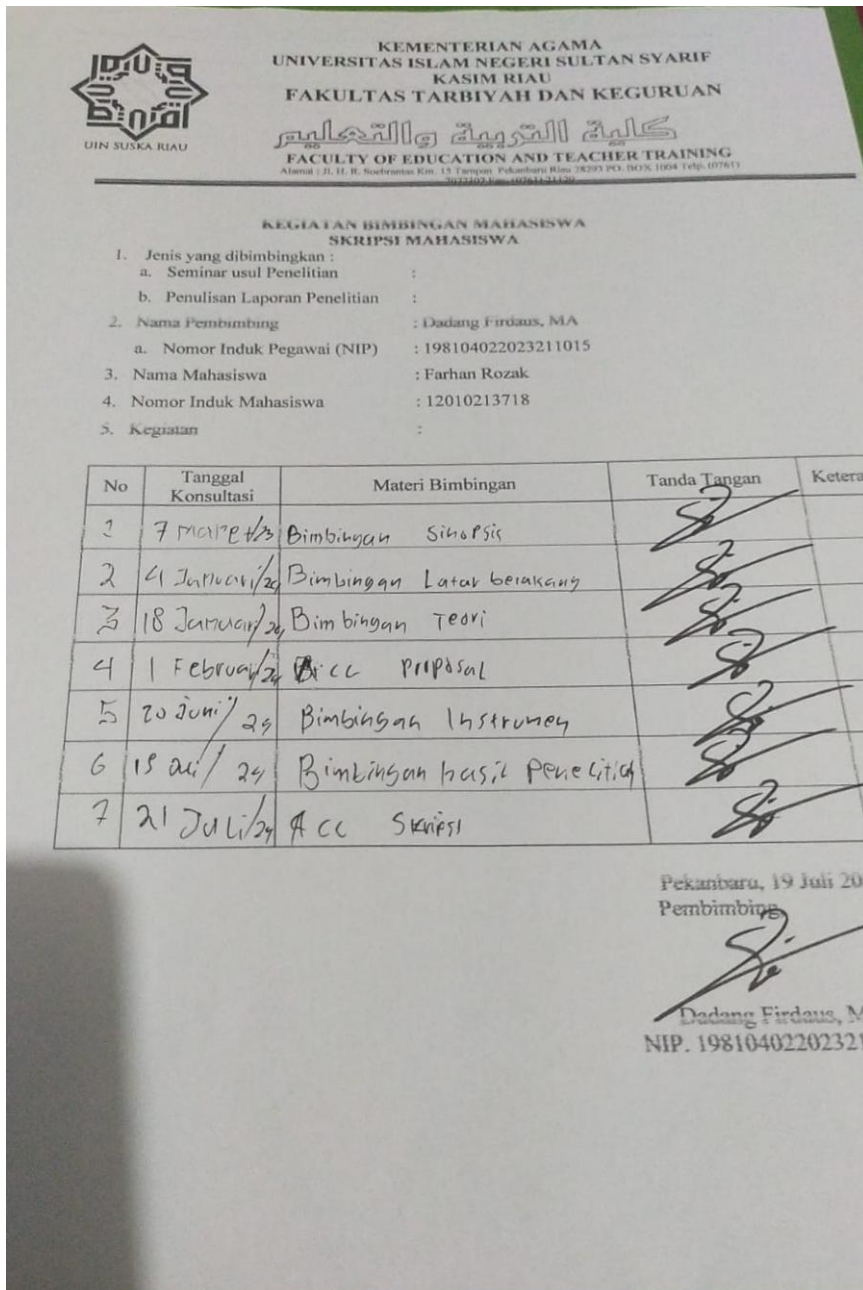 UIN SUSKA RIAU
KEMENTERIAN AGAMA
UNIVERSITAS ISLAM NEGERI SULTAN SYARIF
KASIM RIAU
FAKULTAS TARBIYAH DAN KEGURUAN
كلية التربية والتعليم
FACULTY OF EDUCATION AND TEACHER TRAINING
Alamat : Jl. H. R. Soebrantas Km. 15 Tampan Pekanbaru Riau 28293 PO. BOX 1004 Telp. (0761)
KEGIATAN BIMBINGAN MAHASISWA
SKRIPSI MAHASISWA
1. Jenis yang dibimbingkan :
a. Seminar usul Penelitian :
b. Penulisan Laporan Penelitian :
2. Nama Pembimbing : Dadang Firdaus, MA
a. Nomor Induk Pegawai (NIP) : 198104022023211015
3. Nama Mahasiswa : Farhan Rozak
4. Nomor Induk Mahasiswa : 12010213718
5. Kegiatan :
No Tanggal Konsultasi Materi Bimbingan Tanda Tangan Ketera
1 7 Maret/23 Bimbingan Sinopsis
2 4 Januari/24 Bimbingan Latar belakang
3 18 Januari/24 Bimbingan Teori
4 1 Februari/24 Acc Proposal
5 20 Juni/24 Bimbingan Instrumen
6 Bimbingan hasil Penelitian
7 21 Juli/24 Acc Skripsi
Pekanbaru, 19 Juli 20
Pembimbing
Dadang Firdaus, M
NIP. 19810402202321